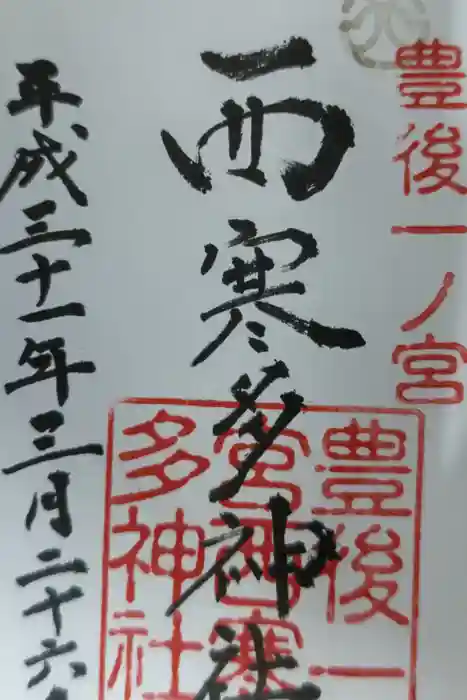 豊後一ノ宮
西寒多神社
平成三十一年三月二十六
豊後一
宮西寒
多神社